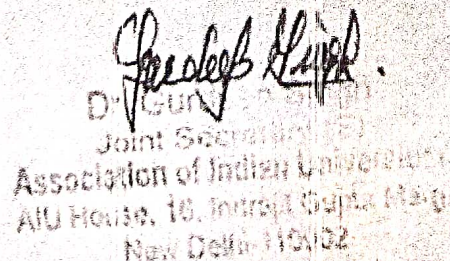 Gurdeep Singh.
Dr. Gurdeep Singh
Joint Secretary
Association of Indian Universities
AIU House, 16, Indrajit Gupta Marg
New Delhi-110002